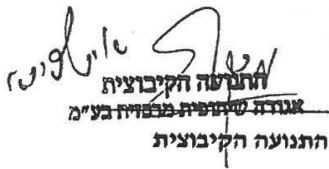 התנועה הקיבוצית
אגודה שיתופית מרכזית בע"מ
התנועה הקיבוצית